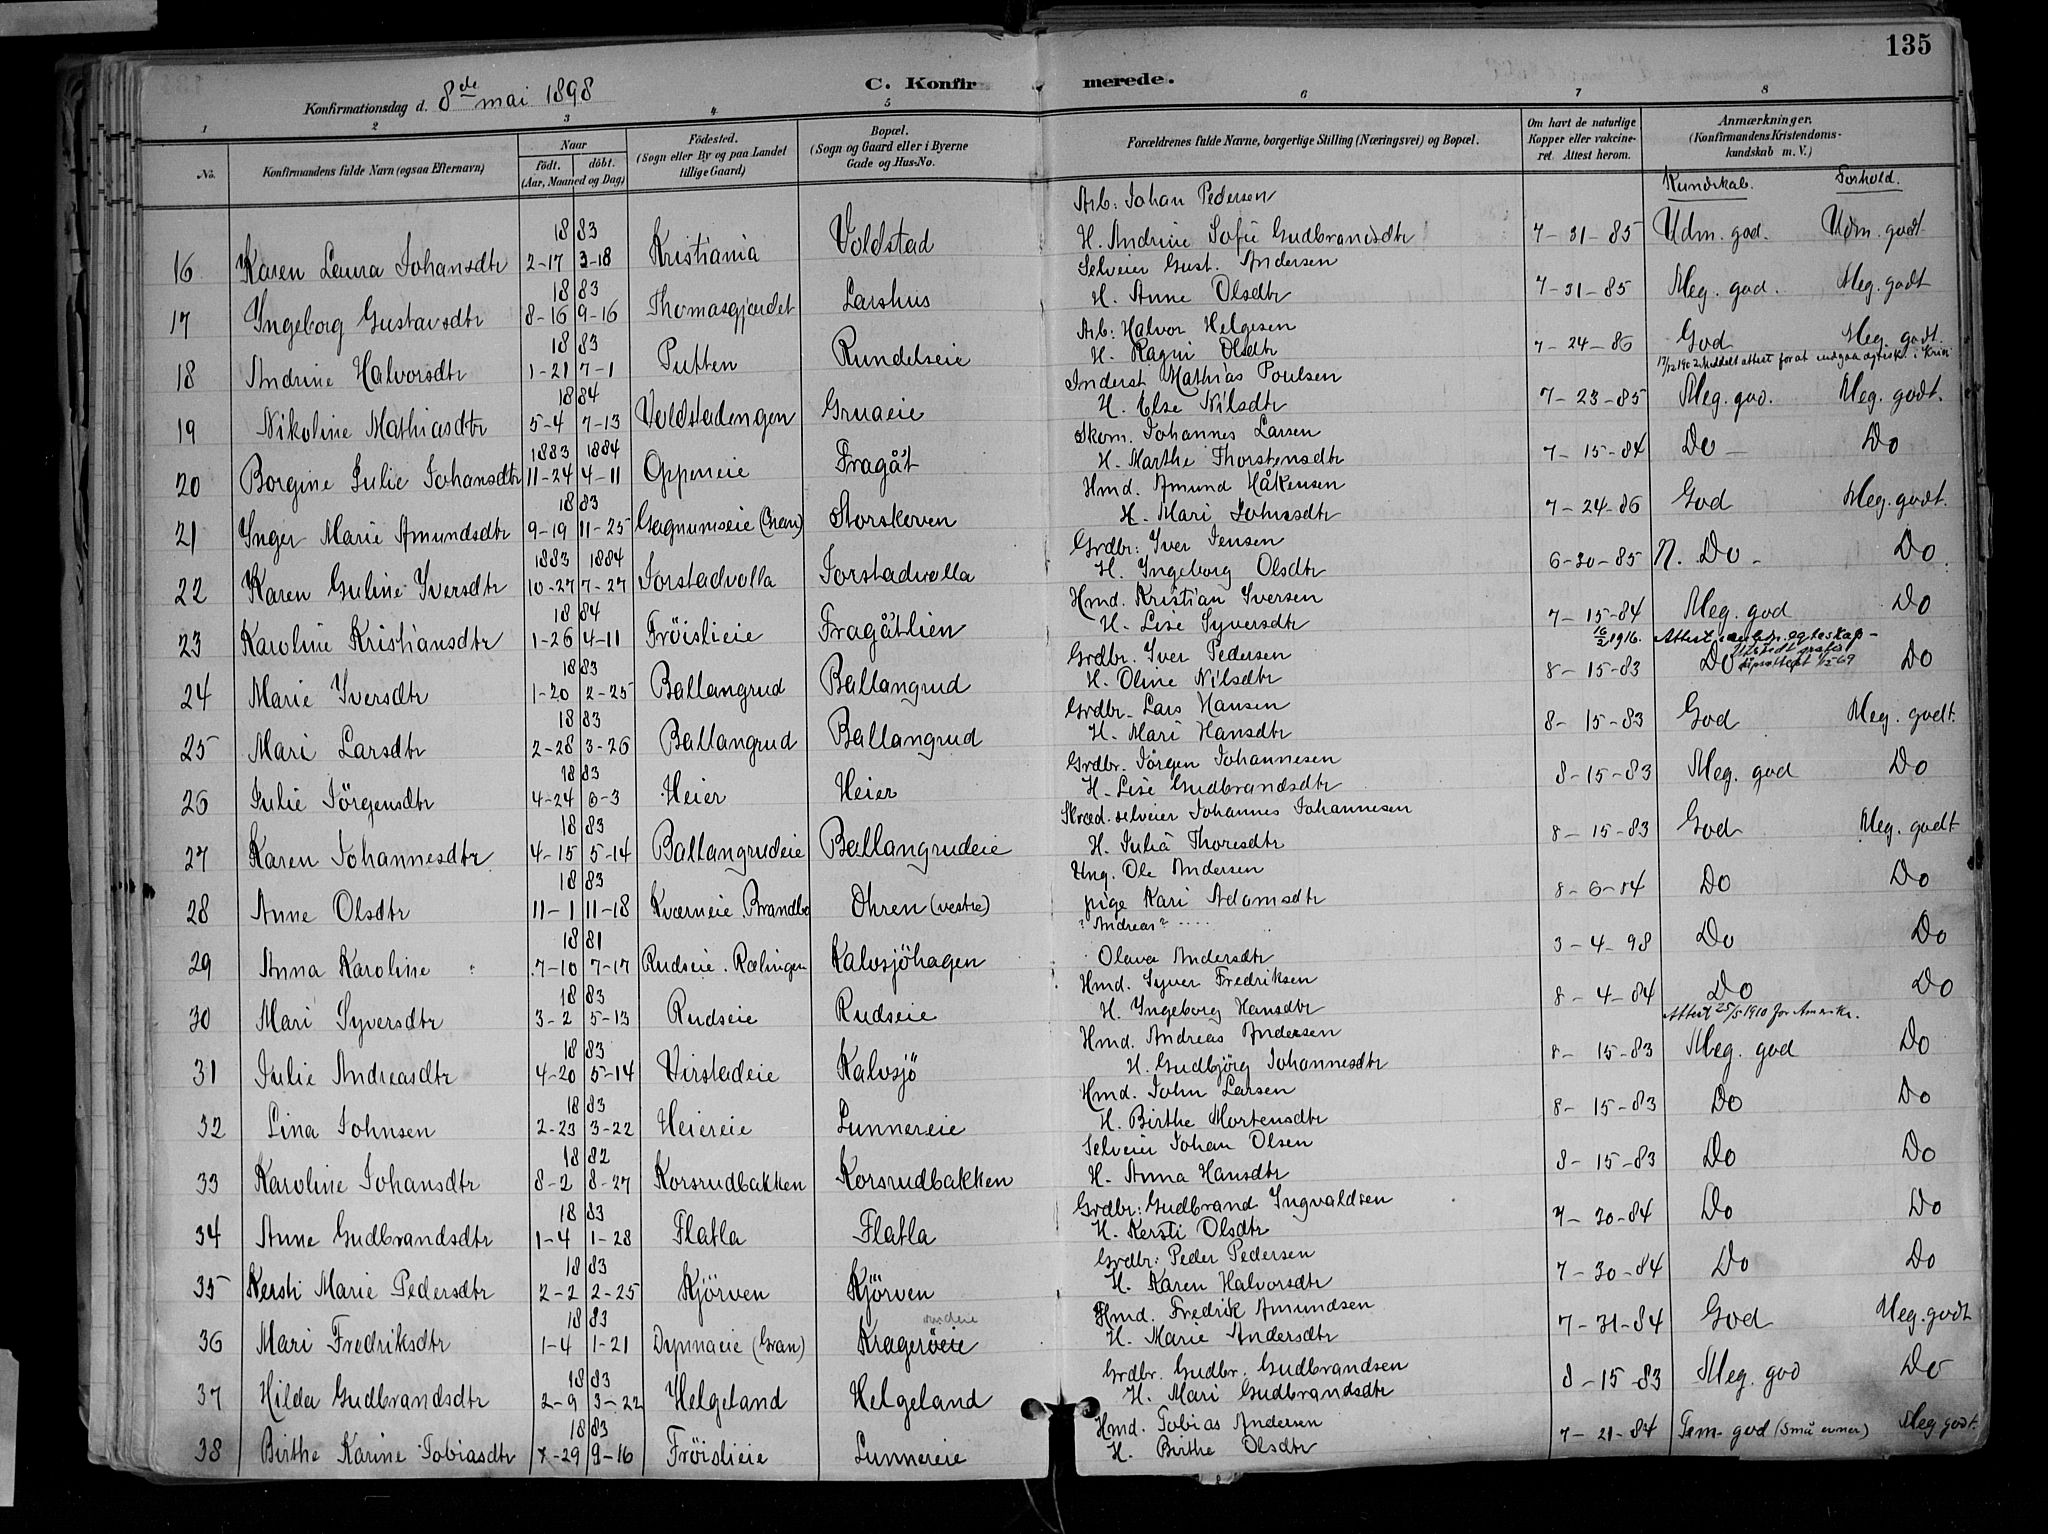 135
C. Konfirmerede.
Konfirmationsdag d. 8de mai 1898
1 2 3 4 5 6 7 8
No. Konfirmandens fulde Navn (ogsaa Efternavn) Naar födt. döbt. (Aar, Maaned og Dag) Födested. (Sogn eller By og paa Landet tillige Gaard) Bopæl. (Sogn og Gaard eller i Byerne Gade og Hus-No. Forældrenes fulde Navne, borgerlige Stilling (Næringsvei) og Bopæl. Om havt de naturlige Kopper eller vakcineret. Attest herom. Anmærkninger. (Konfirmandens Kristendomskundskab m. V.)
Kundskab. Forhold.
16 Karen Laura Johansdtr 1883 2-17 3-18 Kristiania Voldstad Arb: Johan Pedersen H. Andrine Sofie Gudbrandsdtr 7-31-85 Udm. god. Udm. godt
17 Ingeborg Gustavsdtr 1883 8-16 9-16 Thomasgjordet Larshus Selveier Gust. Andersen H. Anne Olsdtr 7-31-85 Meg. god. Meg. godt
18 Andrine Halvorsdtr 1883 1-21 7-1 Putten Rundelseie Arb: Halvor Helgesen H. Ragni Olsdtr 7-24-86 God Meg. godt.
19 Nikoline Mathiasdtr 1884 5-4 7-13 Voldstadengen Gruaeie Inderst Mathias Poulsen H. Else Nilsdtr 7-23-85 Meg. god. Meg. godt.
20 Borgine Julie Johansdtr 1883 1884 11-24 4-11 Oppeneie Fragåt Skom. Johannes Larsen H. Marthe Thorstensdtr 7-15-84 Do Do
21 Inger Marie Amundsdtr 1883 9-19 11-25 Gagnumseie (Gran) Storskoven Hmd. Amund Håkensen H. Mari Johnsdtr 7-24-86 God Meg. godt.
22 Karen Guline Iversdtr 1883 1884 10-27 7-27 Jorstadvolla Jorstadvolla Grdbr: Iver Jensen H. Ingeborg Olsdtr 6-30-85 N. Do Do
23 Karoline Kristiansdtr 1884 1-26 4-11 Fröislieie Fragåtlien Hmd. Kristian Iversen H. Lise Syversdtr 7-15-84 Meg. god Do
24 Marie Iversdtr 1883 1-20 2-25 Ballangrud Ballangrud Grdbr. Iver Pedersen H. Oline Nilsdtr 8-15-83 Do Do
25 Mari Larsdtr 1883 2-28 3-26 Ballangrud Ballangrud Grdbr. Lars Hansen H. Mari Hansdtr 8-15-83 God Meg. godt.
26 Julie Jörgensdtr 1883 4-24 6-3 Heier Heier Grdbr. Jörgen Johannesen H. Lise Gudbrandsdtr 8-15-83 Meg. god Do
27 Karen Johannesdtr 1883 4-15 5-14 Ballangrudeie Ballangrudeie Skræd. selveier Johannes Johannesen H. Julia Thoresdtr 8-15-83 God Meg. godt
28 Anne Olsdtr 1883 11-1 11-18 Kværneie. Brandbo Ohren (vestre) Ung. Ole Andersen pige Kari Adamsdtr 8-6-84 Do Do
29 Anna Karoline 1881 7-10 7-17 Rudseie. Rælingen Kalvsjöhagen ? Andreas ? Olava Andersdtr 3-4-98 Do Do
30 Mari Syversdtr 1883 3-2 5-13 Rudseie Rudseie Hmd. Syver Fredriksen H. Ingeborg Hansdtr 8-4-84 Do Do
Attest 25/5 1910 for Amerika.
31 Julie Andreasdtr 1883 4-20 5-14 Virstadeie Kalvsjö Hmd. Andreas Andersen H. Gudbjörg Johannesdtr 8-15-83 Meg. god Do
32 Lina Johnsen 1883 2-23 3-22 Heiereie Lunnereie Hmd. John Larsen H. Birthe Mortensdtr 8-15-83 Do Do
33 Karoline Johansdtr 1882 8-2 8-27 Korsrudbakken Korsrudbakken Selveier Johan Olsen H. Anna Hansdtr 8-15-83 Do Do
34 Anne Gudbrandsdtr 1883 1-4 1-28 Flatla Flatla Grdbr: Gudbrand Ingvaldsen H. Kersti Olsdtr 7-30-84 Do Do
35 Kersti Marie Pedersdtr 1883 2-2 2-25 Kjörven Kjörven Grdbr: Peder Pedersen H. Karen Halvorsdtr 7-30-84 Do Do
36 Mari Fredriksdtr 1883 1-4 1-21 Dynnaeie (Gran) Kragerøeie Hmd. Fredrik Amundsen H. Marie Andersdtr 7-31-84 God Meg. godt
37 Hilda Gudbrandsdtr 1883 2-9 3-22 Helgeland Helgeland Grdbr. Gudbr. Gudbrandsen H. Mari Gudbrandsdtr 8-15-83 Meg. god Do
38 Birthe Karine Tobiasdtr 1883 7-29 9-16 Fröislieie Lunnereie Hmd. Tobias Andersen H. Birthe Olsdtr 7-21-84 Tem. god (små evner) Meg godt.